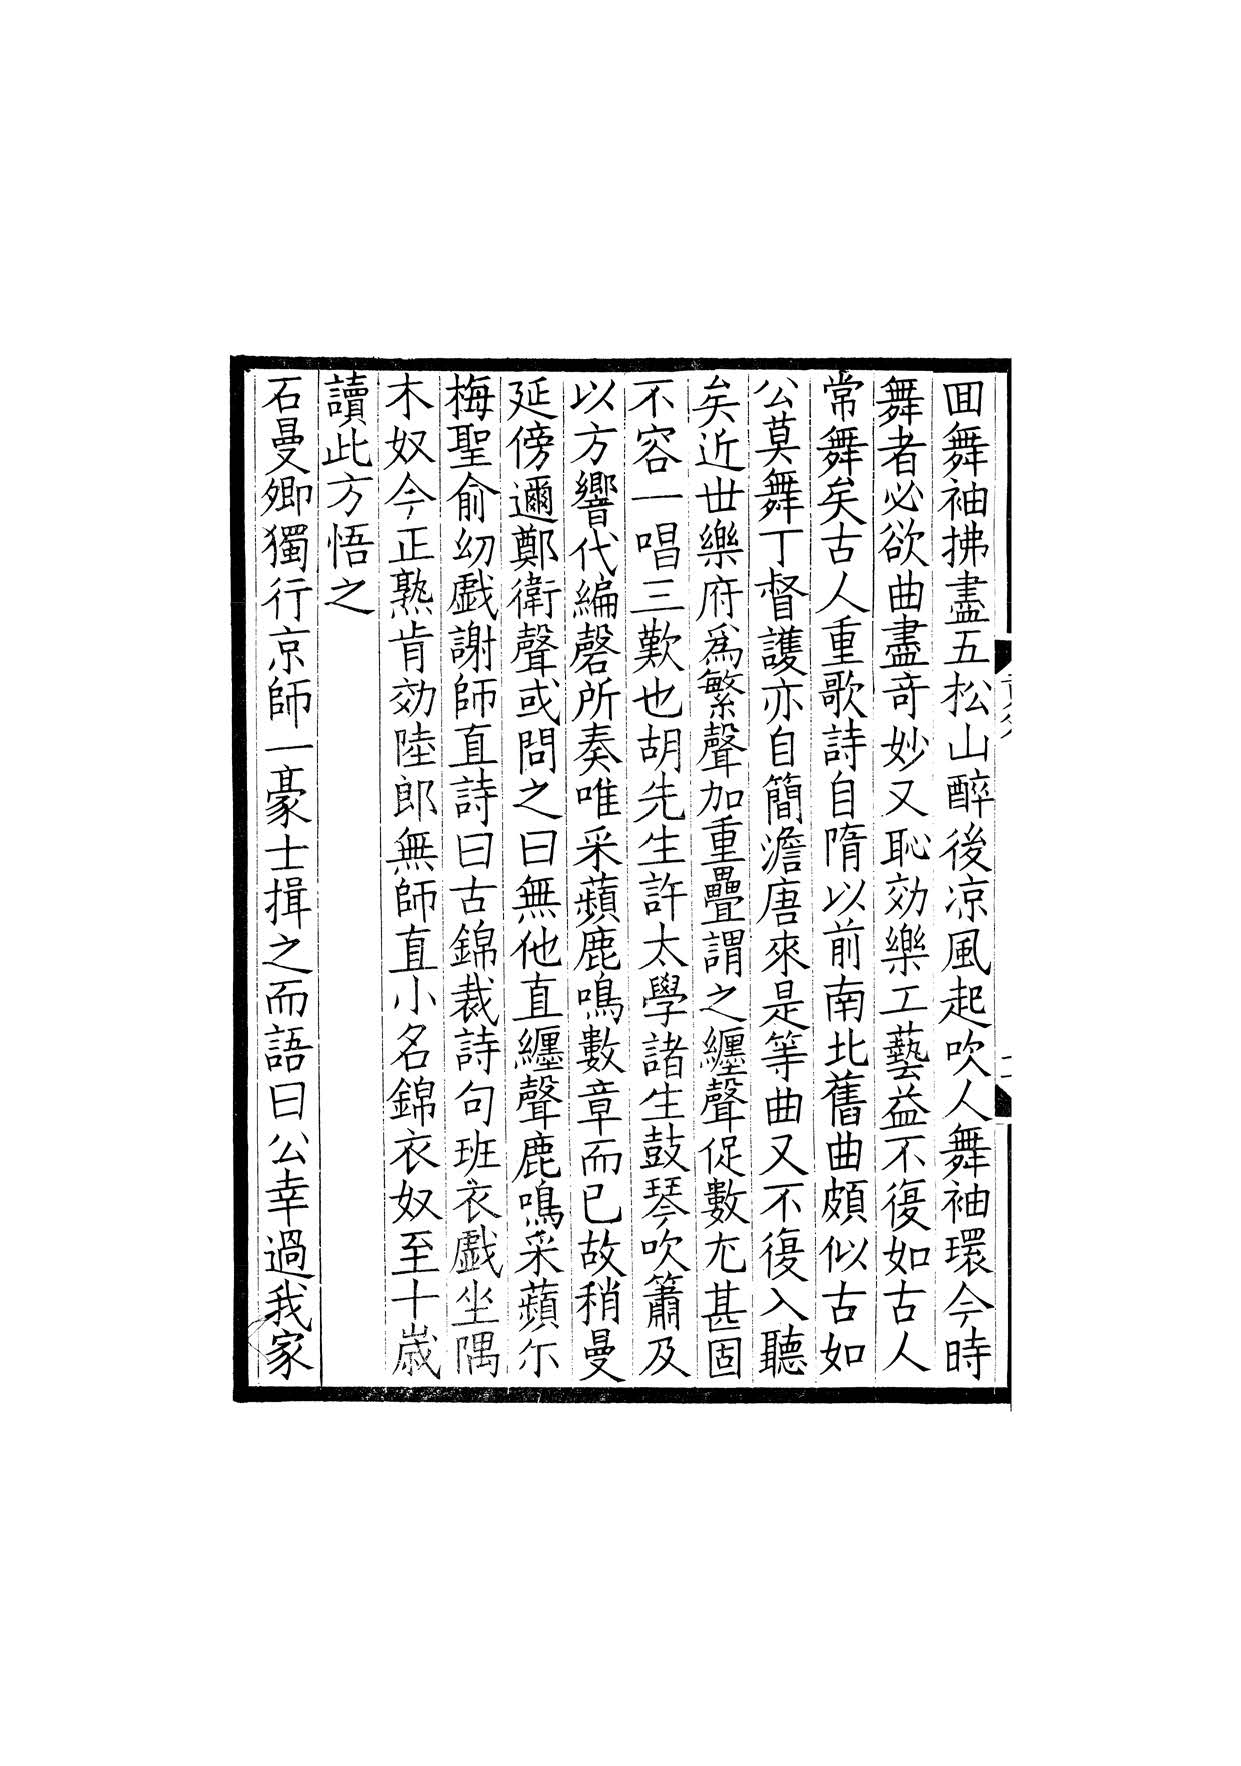 囬舞袖拂盡五松山醉後凉風起吹人舞袖環今時
舞者必欲曲盡竒妙又恥効樂工藝益不復如古人
常舞矣古人重歌詩自隋以前南北舊曲頗似古如
公莫舞丁督護亦自簡澹唐來是等曲又不復入聽
矣近世樂府爲繁聲加重疊謂之纒聲促數尤甚固
不容一唱三歎也胡先生許太學諸生鼓琴吹簫及
以方響代編磬所奏唯采蘋鹿鳴數章而已故稍曼
延傍邇鄭衛聲或問之曰無他直纒聲鹿鳴采蘋尓
梅聖俞㓜戲謝師直詩曰古錦裁詩句班衣戲坐隅
木奴今正熟肯効陸郎無師直小名錦衣奴至十歲
讀此方悟之
石曼卿獨行京師一豪士揖之而語曰公幸過我家